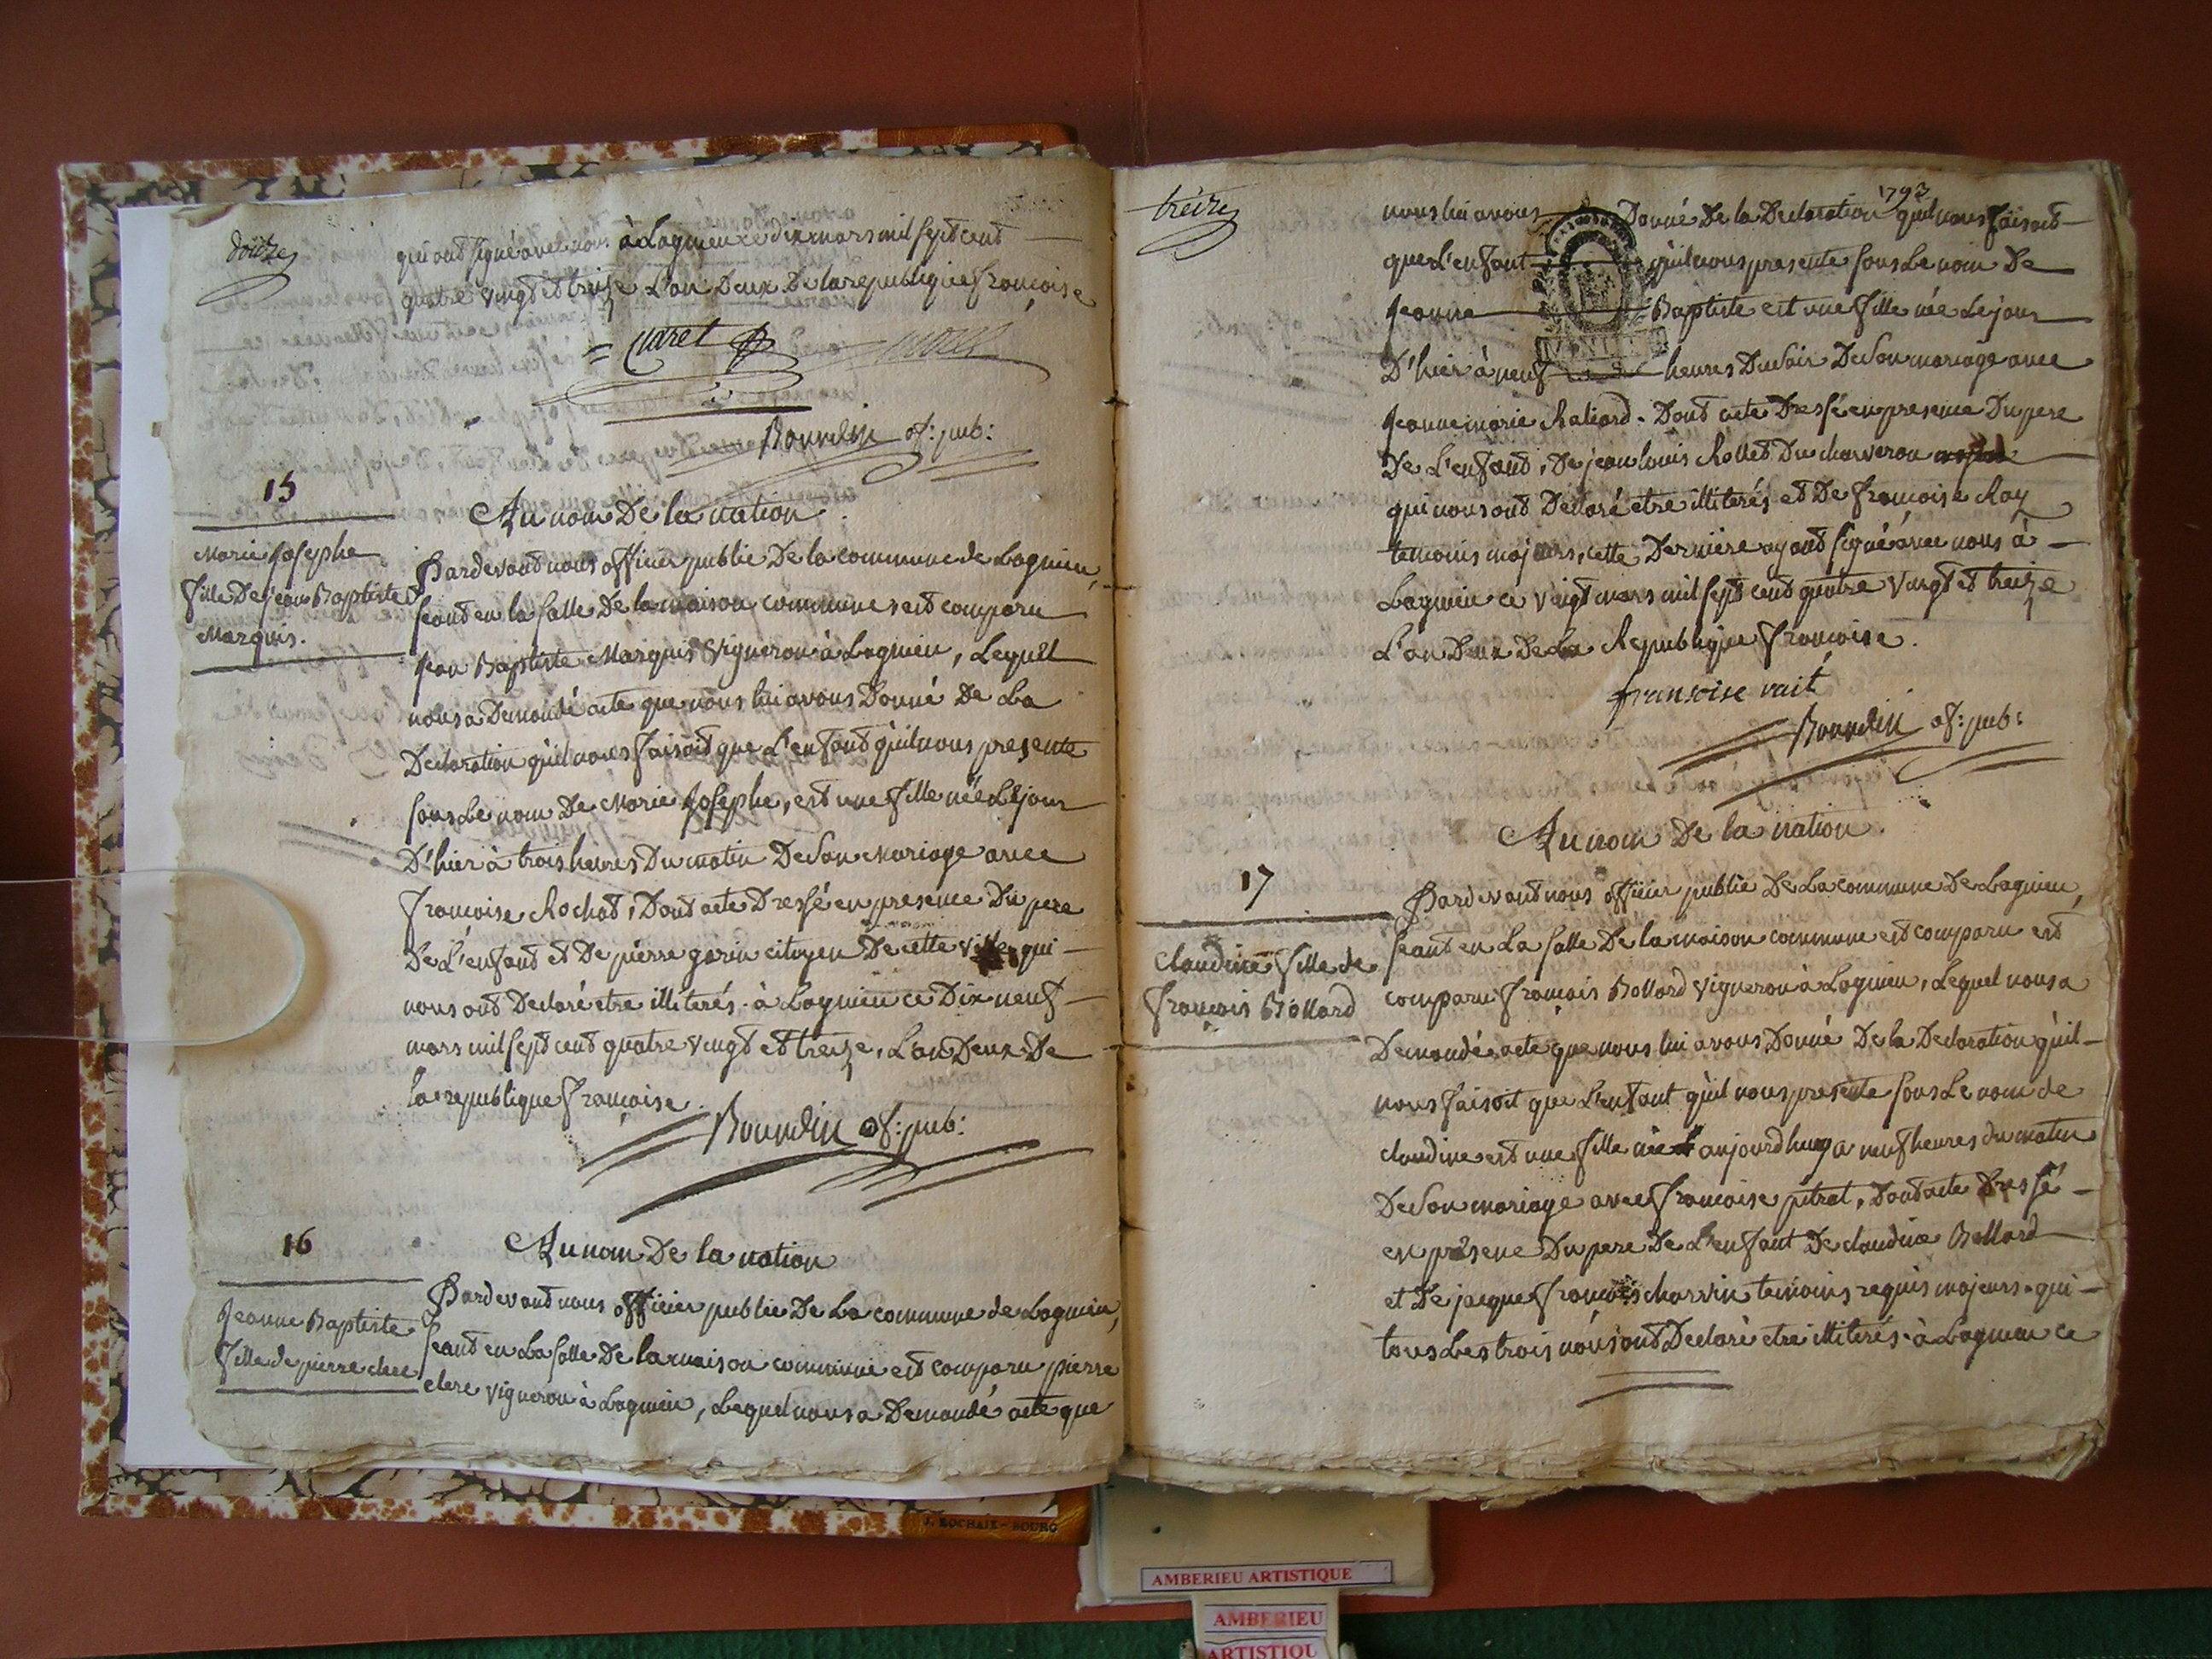 douze
qui ont signé avec nous à Lagnieu ce dix mars mil sept cent
quatre vingt et treize L'an Deux De la republique françoise
Bourdin of: pub:
15
Au nom De la nation
Marie Josephe
fille De jean Baptiste
Marquis.
Pardevant nous officier public De la commune de Lagnieu,
seant en la salle De la maison commune est comparu
Jean Baptiste Marquis Vigneron à Lagnieu, Lequel
nous a Demandé acte que nous lui avons Donné De La
Declaration qu'il nous faisoit que L'enfant qu'il nous presente
sous Le nom De Marie Josephe, est une fille née Le jour
D'hier à trois heures Du matin De son mariage avec
françoise Rochat, Dont acte Dressé en presence Du pere
De L'enfant et De pierre garin citoyen De cette ville, qui
nous ont Declaré etre illiterés. à Lagnieu ce Dix neuf
mars mil sept cent quatre vingt et treize, L'an Deux De
la republique françoise.
Bourdin of: pub:
16
Au nom De la nation
Jeanne Baptiste
fille de pierre clerc
Pardevant nous officier public De La commune de Lagnieu,
seant en La salle De la maison commune est comparu pierre
clerc vigneron à Lagnieu, Lequel nous a Demandé acte que
treize
1793
nous lui avons Donné De la Declaration qu'il nous faisoit
que L'enfant qu'il nous presente sous Le nom De
Jeanne Baptiste est une fille née Le jour
D'hier à neuf heures Du soir De son mariage avec
Jeanne marie Raliard. Dont acte Dressé en presence Du pere
De L'enfant, De jean louis Rollet Du charveron
qui nous ont Declaré etre illiterés et De françoise Roy
temoins majeurs, cette Derniere ayant signé avec nous à
Lagnieu ce vingt mars mil sept cent quatre vingt et treize
L'an Deux De La Republique françoise.
Bourdin of: pub:
Au nom De la nation
17
Claudine fille de
françois Bollard
Pardevant nous officier public De La commune De Lagnieu,
seant en La salle De la maison commune est comparu est
comparu françois Bollard vigneron à Lagnieu, Lequel nous a
Demandé acte que nous lui avons Donné De la Declaration qu'il
nous faisoit que L'enfant qu'il nous presente sous Le nom de
claudine est une fille née aujourd huy a neuf heures du matin
De son mariage avec françoise pitrat, Dont acte Dressé
en presence Du pere De L'enfant De claudine Bollard
et De jacque françois charvin temoins requis majeurs. qui
tous Les trois nous ont Declaré etre illiterés. à Lagnieu ce
J. ROCHAIX - BOURG
AMBERIEU ARTISTIQUE
AMBERIEU